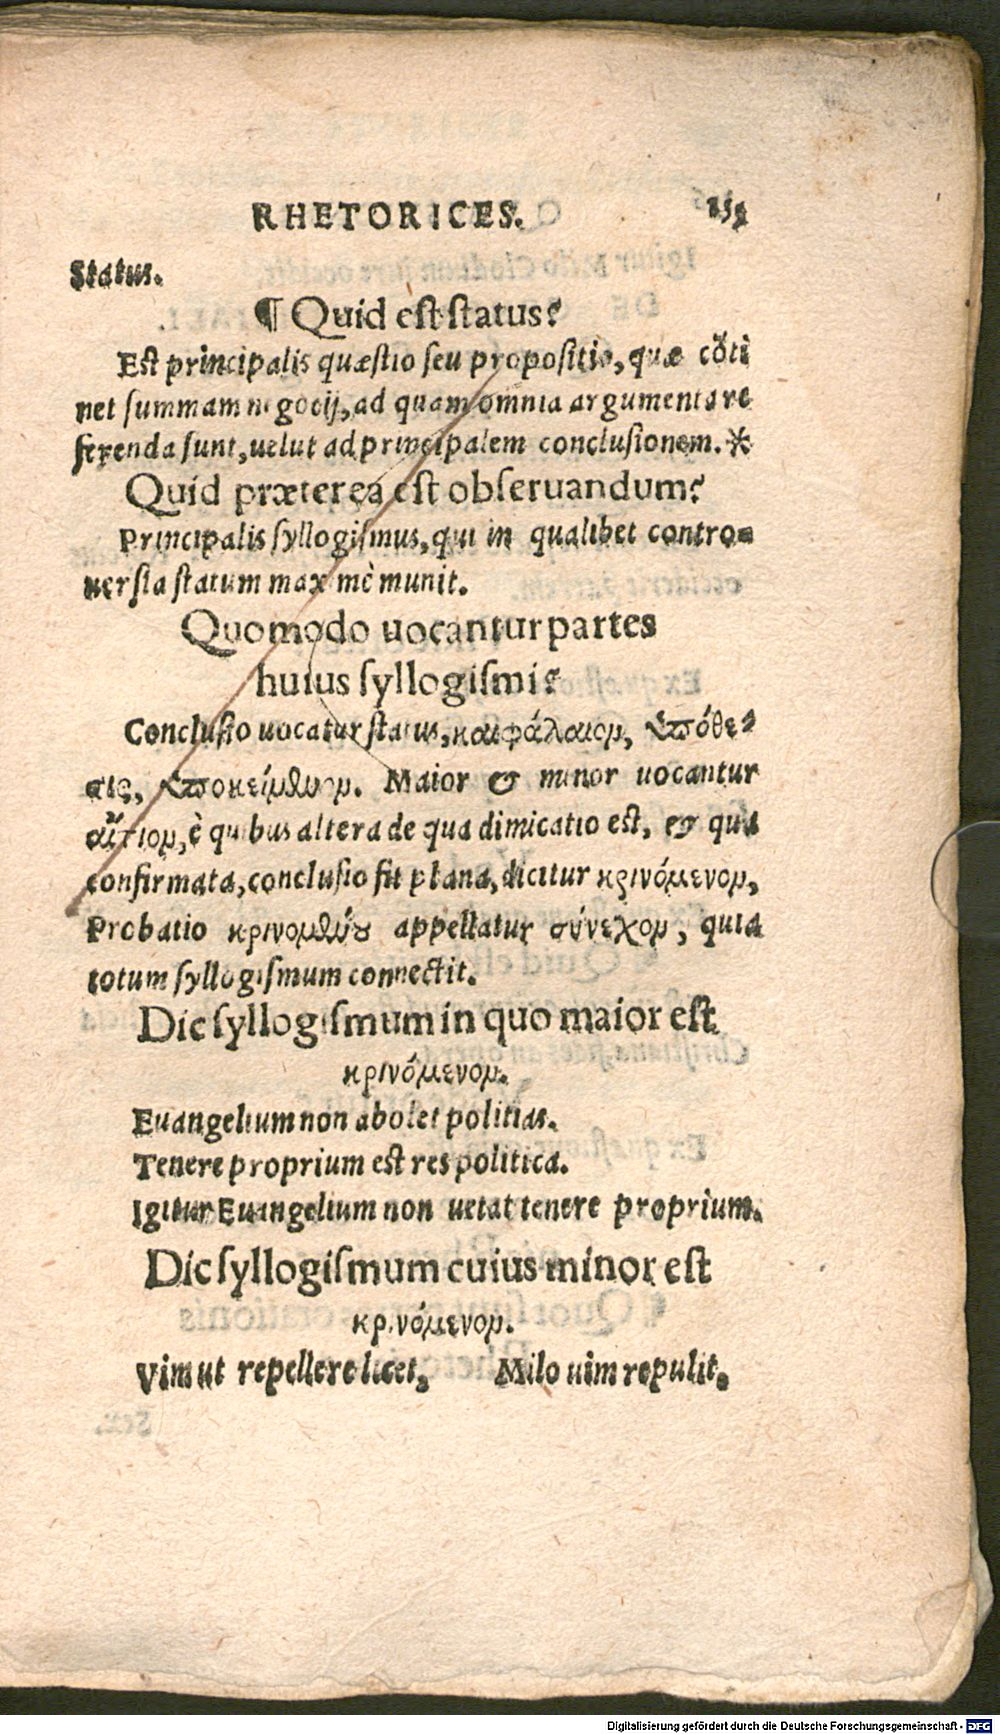 RHETORICES.
Status.
¶ Quid est status?
Est principalis quæstio seu propositio, quæ cõti
net summam negocij, ad quam omnia argumenta re
ferenda sunt, uelut ad principalem conclusionem. *
Quid præterea est obseruandum?
Principalis syllogismus, qui in qualibet contro-
uersia statum maximè munit.
Quomodo uocantur partes
huius syllogismi?
Conclusio uocatur status, και φάλαιον, ὑπόθε-
σις, ὑποκείμενον. Maior & minor uocantur
αἴτιον, è quibus altera de qua dimicatio est, & qua
confirmata, conclusio fit plana, dicitur κρινόμενον,
Probatio κρινομένου appellatur σύνεχον, quia
totum syllogismum connectit.
Dic syllogismum in quo maior est
κρινόμενον.
Euangelium non abolet politias.
Tenere proprium est res politica.
Igitur Euangelium non uetat tenere proprium.
Dic syllogismum cuius minor est
κρινόμενον.
Vim ut repellere licet, Milo uim repulit.
Digitalisierung gefördert durch die Deutsche Forschungsgemeinschaft - DFG